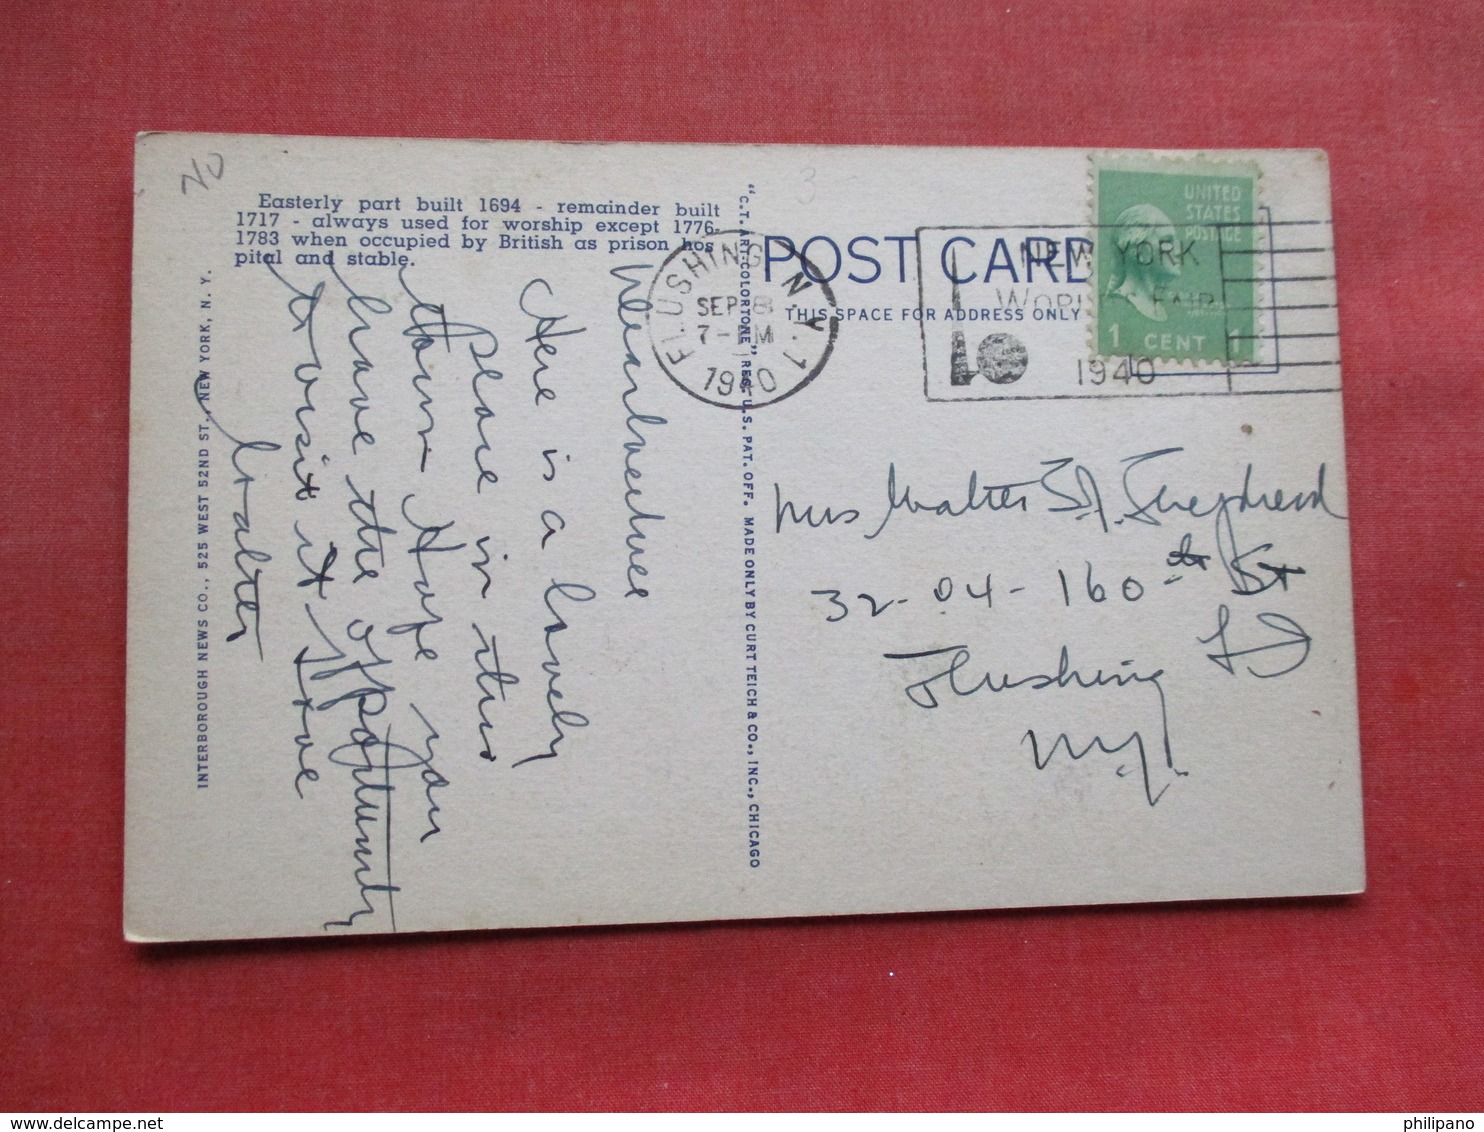 20
3
Easterly part built 1694 - remainder built
1717 - always used for worship except 1776-
1783 when occupied by British as prison hos
pital and stable.
Here is a lovely
place in this
town - Hope you
have the opportunity
to visit it
Walter
INTERBOROUGH NEWS CO., 525 WEST 52ND ST., NEW YORK, N. Y.
"C.T. ART-COLORTONE" REG. U.S. PAT. OFF. MADE ONLY BY CURT TEICH & CO., INC., CHICAGO
POST CARD
THIS SPACE FOR ADDRESS ONLY
FLUSHING N.Y. 1
SEP 8
7 - PM
1940
NEW YORK
WORLD'S FAIR
1940
UNITED
STATES
POSTAGE
1 CENT 1
Mrs Walter Shepherd
32-04-160th St
Flushing
L I
N.Y.
philipano